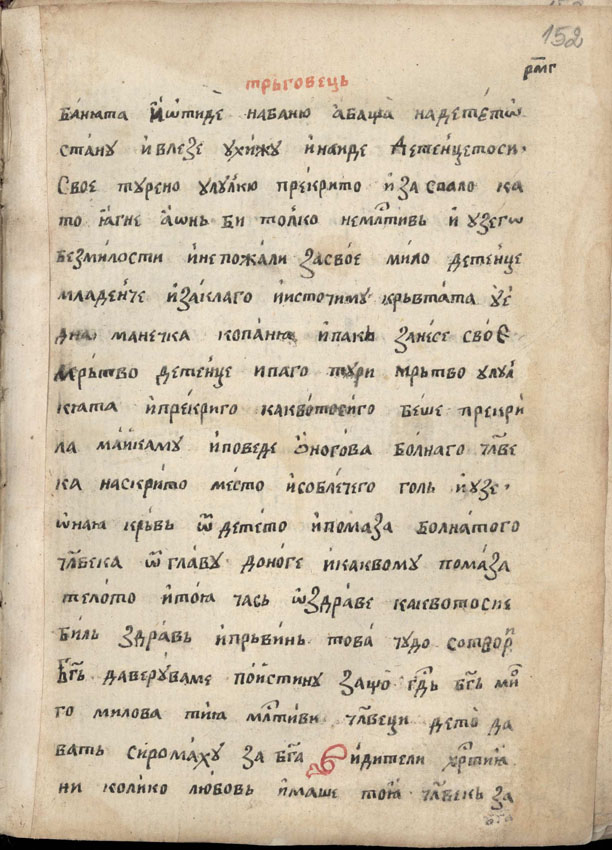 152
рм҃г
трьговець
банята И ѿтиде на баню а баща на детето
стану и влезе у хижу и наиде детенцето си.
Свое турено у лулкю прекрито и заспало ка
то ягне а онь би толко немл҃тивь и узего
без милости и не пожали за свое мило детенце
младенче и закла го и источи му крьвтата у е
дна манечка копаня и пакь занесе свое
мрьтво детенце и па го тури мрьтво у лул
кята и прекри го какво то си го беше прекри
ла майка му и поведе оногова болнаго чл҃ве
ка на скрито место и соблече го голь и узе.
оная крьвь ѿ детето и помаза болнатого
чл҃века ѿ главу до ноге и какво му помаза
телото и тоя чась оздраве какво то си е
биль здравь и прьвинь това чудо сотвори
Бг҃ь да веруваме поистину защо гд҃ь бг҃ь мно
го милова тия мл҃тиви чл҃веци дето да
вать сиромаху за бг҃а видители хр҃тия
ни колико любовь имаше тоя чл҃векь за
бг҃а